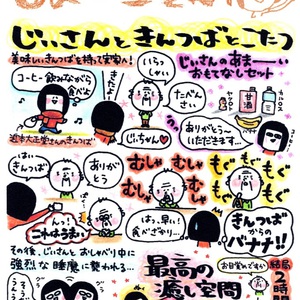 じいさんときんつばとこたつ
美味しいきんつばを持って実家へ!
じいさんのあまーーい
おもてなしセット
コーヒー飲みながら
食べよ
きたよ〜
いらっ
しゃい
たべんさい
じいちゃん
ありがとう〜
いただきます
近本大正堂さんのきんつば
はい
きんつば
ありがとう
むしゃ
むしゃ
むしゃ
もぐ
もぐ
もぐ
こわはうまい
はっ、早い!
食べざかり…
きんつば
からの
バナナ!!
その後、じいさんと おしゃべり中に
強烈な睡魔に襲われる…
最高の
癒し空間
お目覚めですか
結局
時